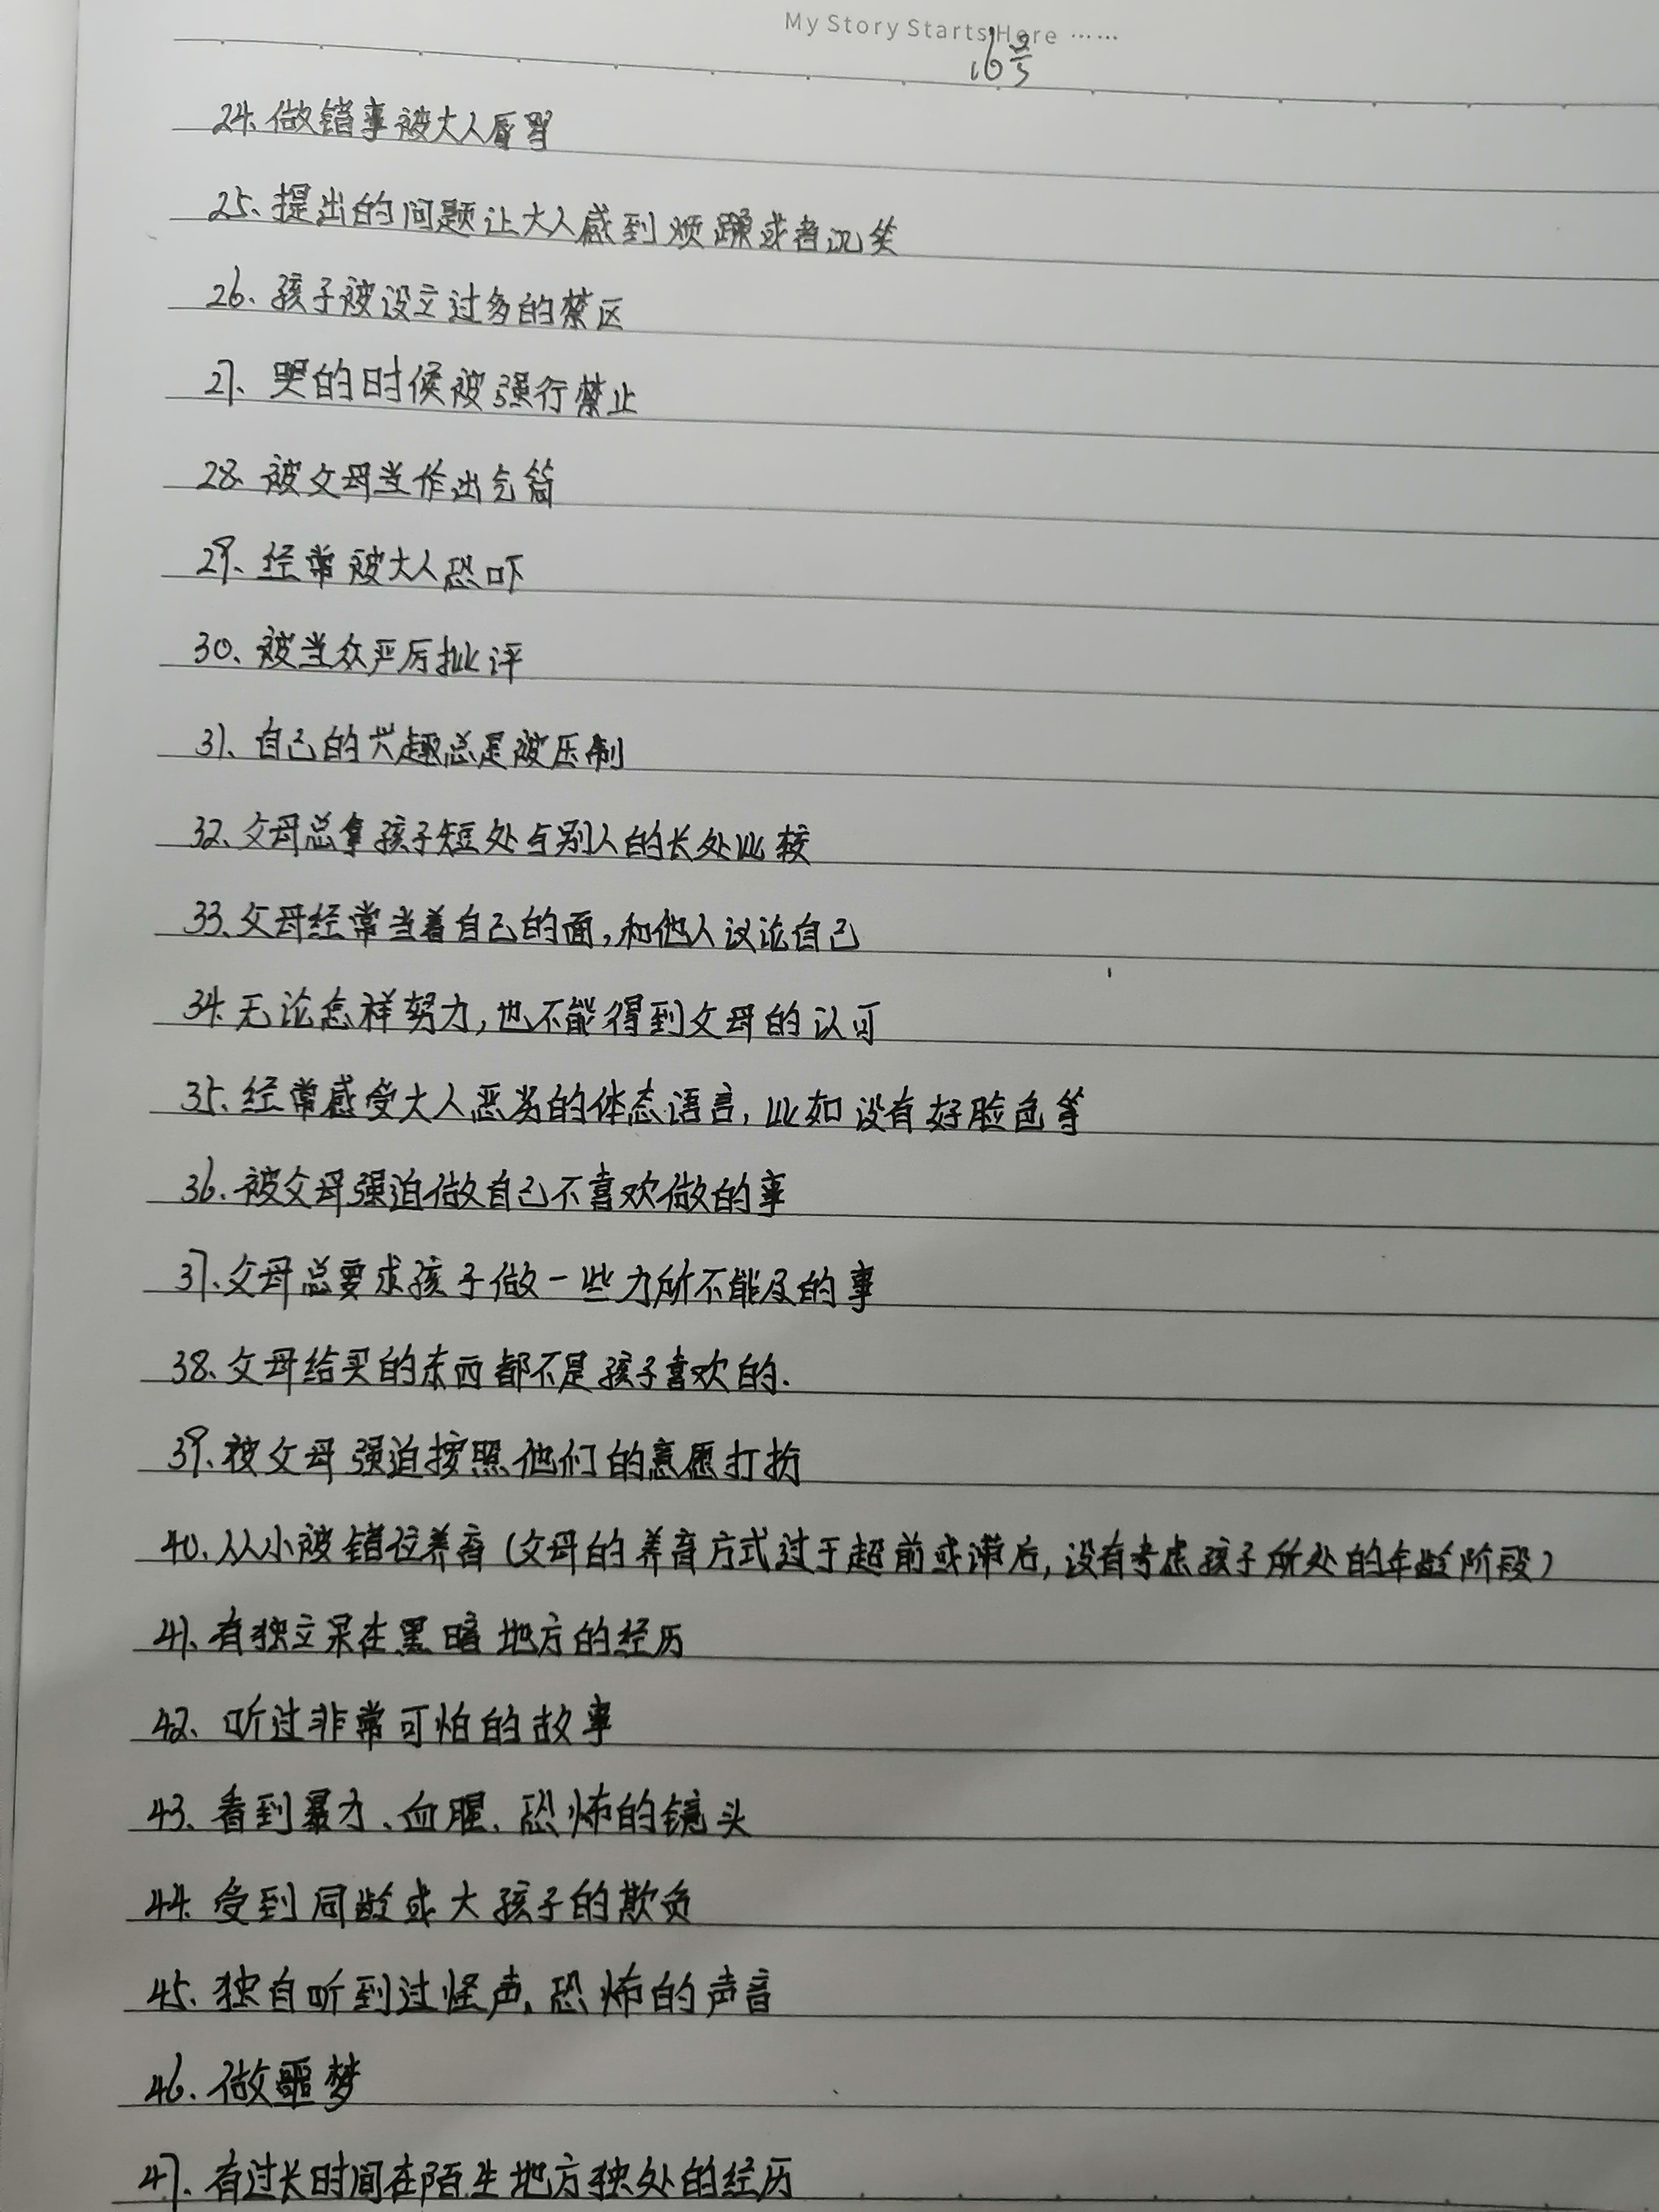 My Story Starts Here ……
16号
24. 做错事被大人辱骂
25、提出的问题让大人感到烦躁或者讥笑
26、孩子被设立过多的禁区
27、哭的时候被强行禁止
28、被父母当作出气筒
29、经常被大人恐吓
30、被当众严厉批评
31、自己的兴趣总是被压制
32、父母总拿孩子短处与别人的长处比较
33、父母经常当着自己的面,和他人议论自己
34. 无论怎样努力,也不能得到父母的认可
35、经常感受大人恶劣的体态语言,比如没有好脸色等
36、被父母强迫做自己不喜欢做的事
37、父母总要求孩子做一些力所不能及的事
38、父母给买的东西都不是孩子喜欢的.
39、被父母强迫按照他们的意愿打扮
40、从小被错位养育(父母的养育方式过于超前或滞后,没有考虑孩子所处的年龄阶段)
41、有独立呆在黑暗地方的经历
42、听过非常可怕的故事
43、看到暴力、血腥、恐怖的镜头
44. 受到同龄或大孩子的欺负
45、独自听到过怪声、恐怖的声音
46、做噩梦
47、有过长时间在陌生地方独处的经历